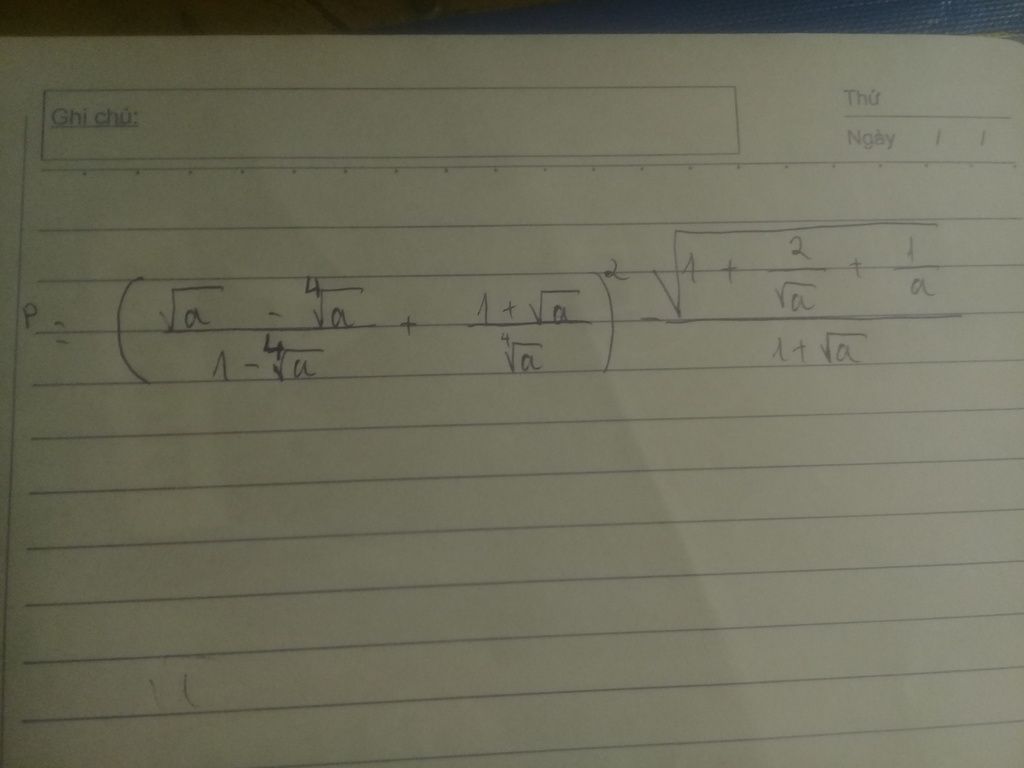 Ghi chú:
Thứ
Ngày / /
P = ( (√a - ∜a)/(1 - ∜a) + (1 + √a)/∜a )² - √(1 + 2/√a + 1/a)/(1 + √a)